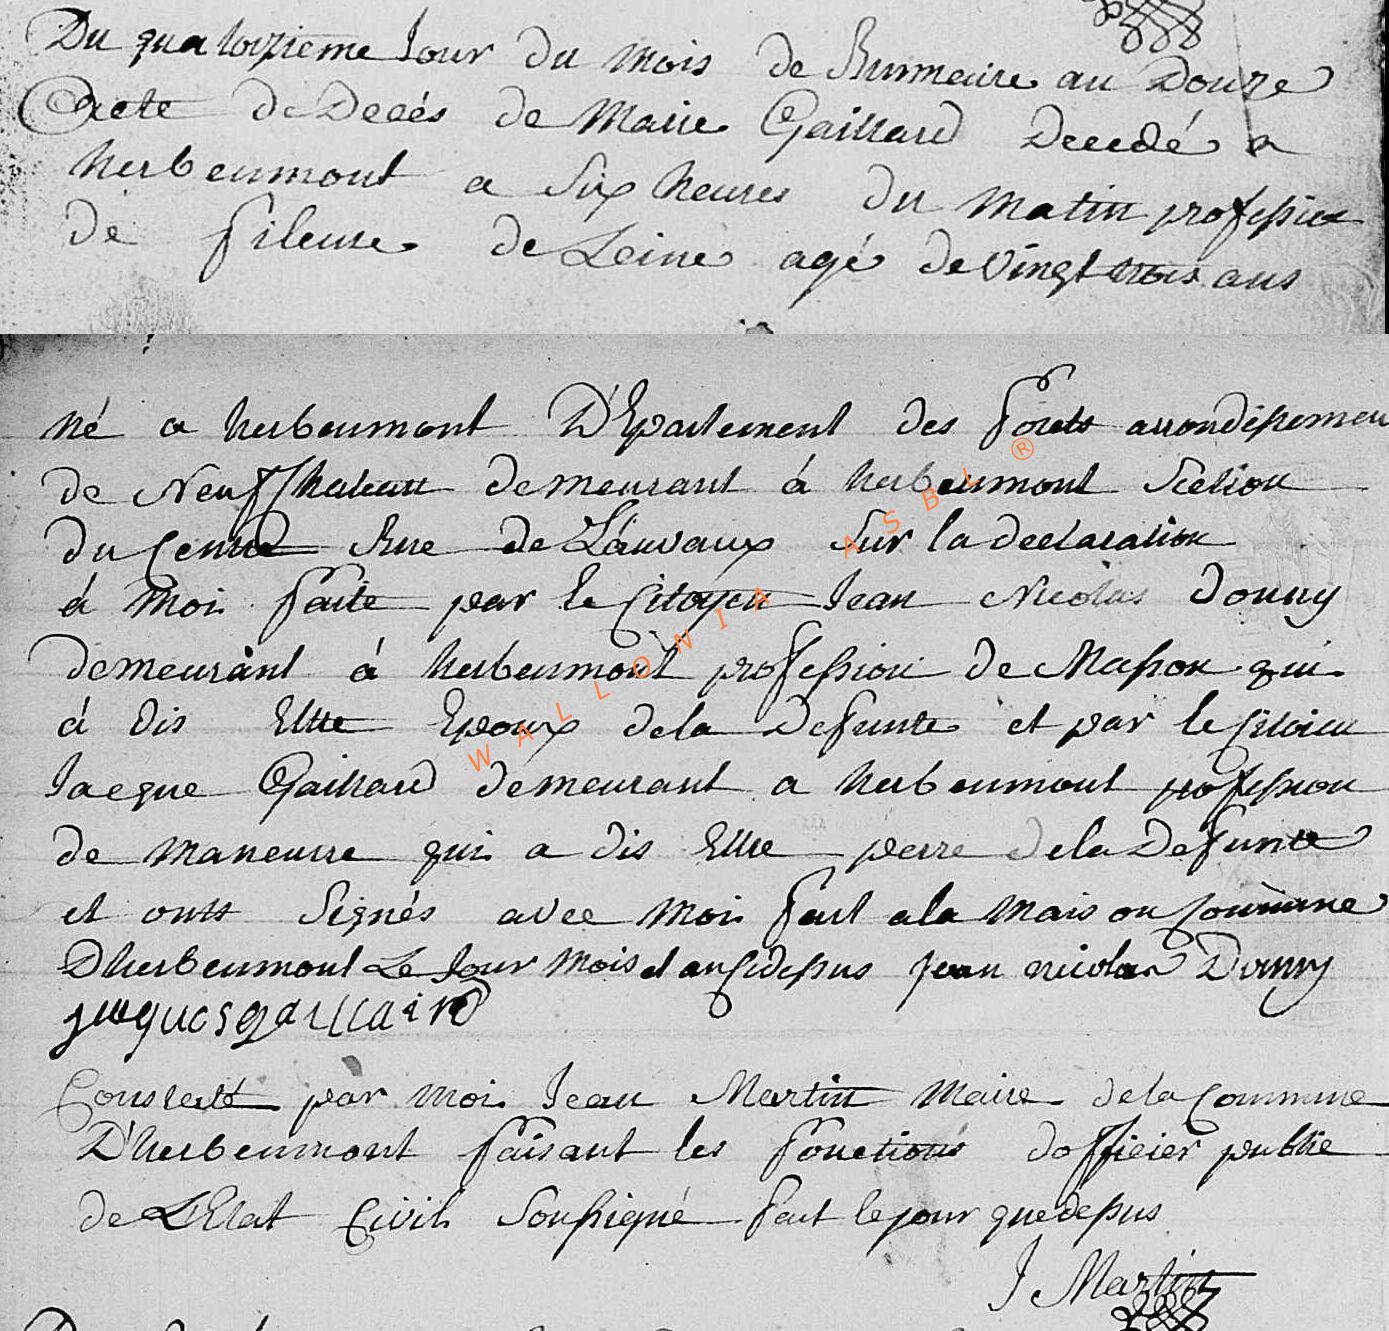 Du quatorzieme Jour du mois de Brumaire an Douze
Acte de Decés de Marie Gaillard Decedé a
herbeumont a Six heures du matin profession
de fileuse de Leine agé de vingt trois ans
né a herbeumont D'Epartement des forets arrondissement
de Neufchateau demeurant à herbeumont Section
du Centre Rue de Lauvaux Sur la declaration
á moi faite par le Citoyen Jean Nicolas Donny
demeurant á herbeumont profession de Masson qui
á dis Ettre Epoux dela Defunte et par le Citoien
Jacque Gaillard demeurant a herbeumont profession
de maneuvre qui a dis Ettre perre dela Defunte
et ontt Signés avec moi fait ala maison Commune
Dherbeumont Le Jour mois et an cidessus jean nicolas Donny
jacques gaillaird
Constaté par moi Jean Martin maire dela Commune
D'herbeumont faisant les fonctions dofficier public
de L'Etat Civil Soussigné fait le jour que dessus
J Martin
WALLONIA ASBL ®